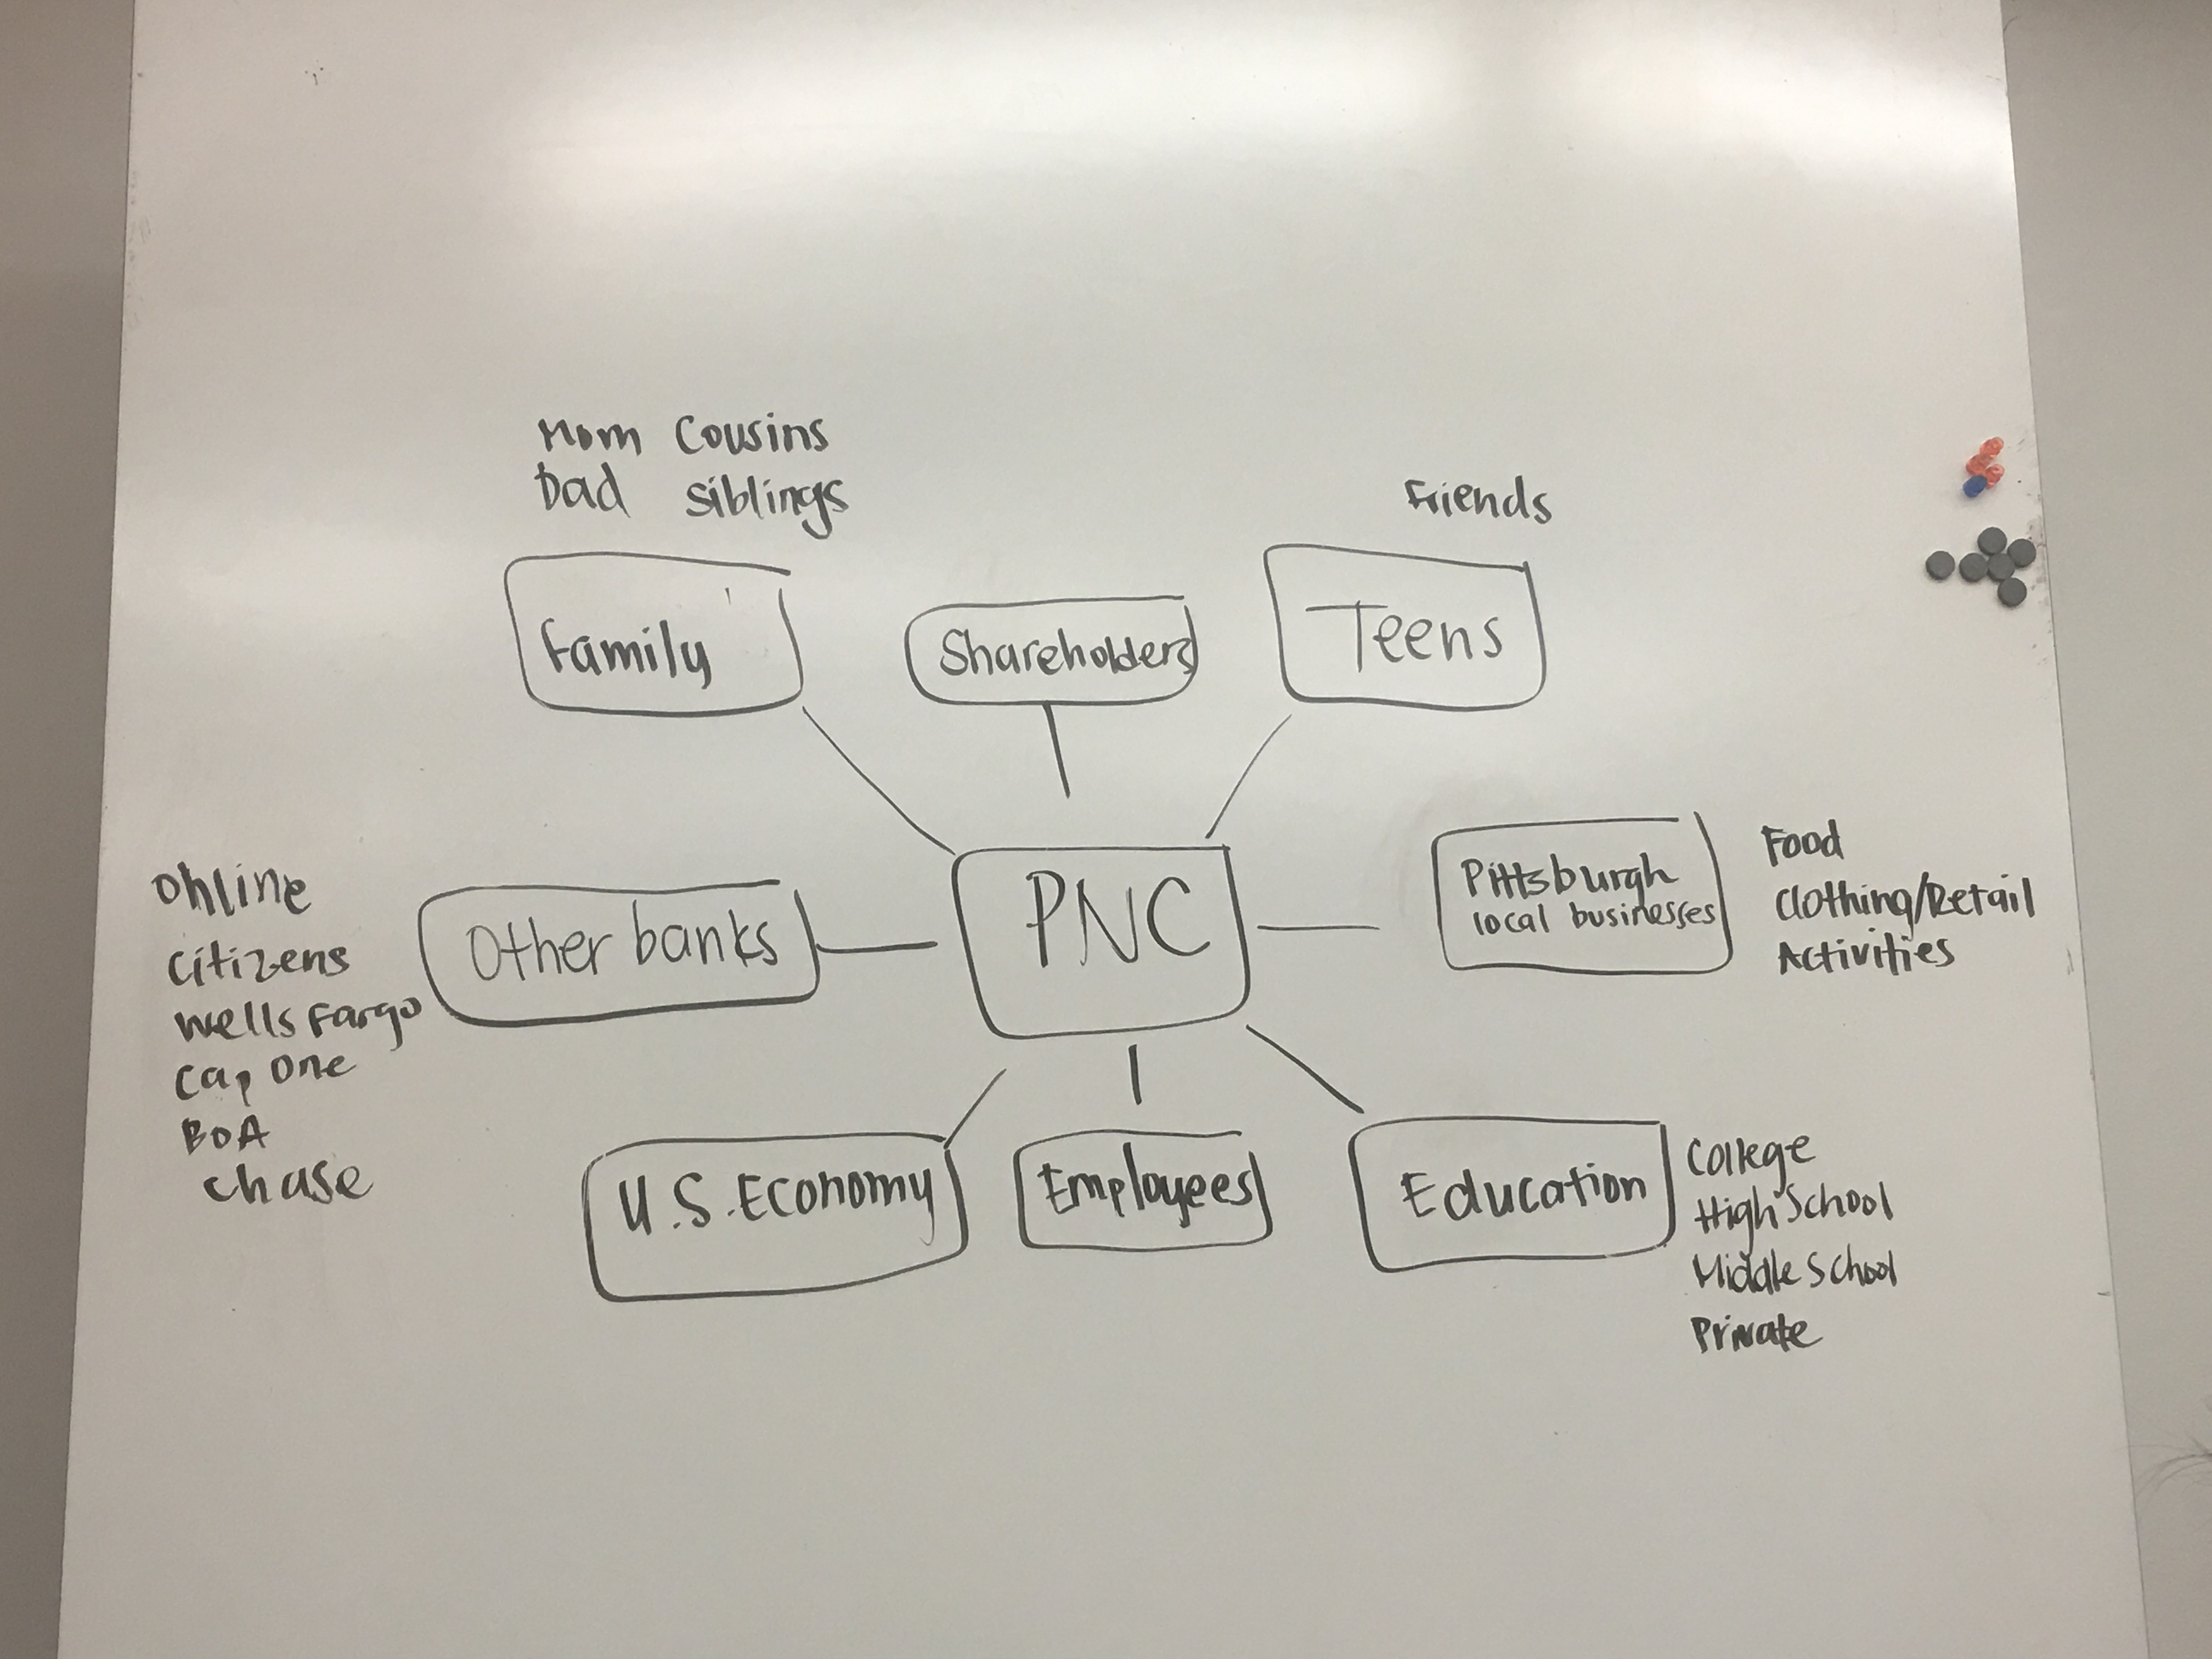 Mom Cousins
Dad Siblings
Friends
Family
Shareholders
Teens
Online
Citizens
Wells Fargo
Cap One
BoA
Chase
Other banks
PNC
Pittsburgh
local businesses
Food
Clothing/Retail
Activities
U.S. Economy
Employees
Education
College
High School
Middle School
Private